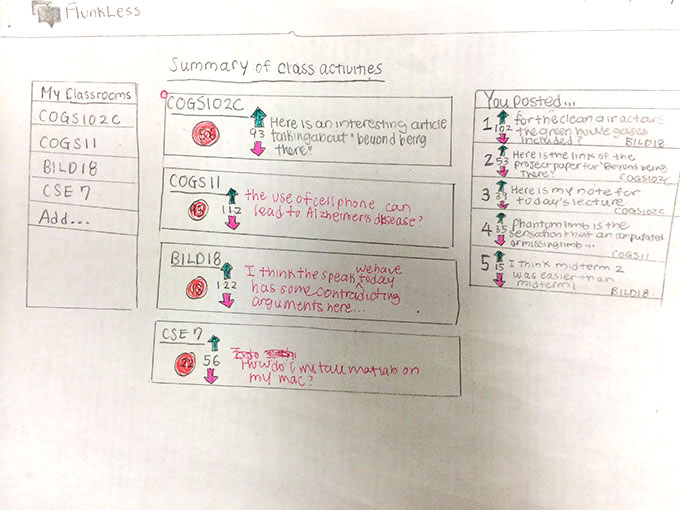 FlunkLess
Summary of class activities
My Classrooms
COGS102C
COGS11
BILD18
CSE 7
Add...
COGS102C
93
Here is an interesting article
talking about "beyond being
there"
COGS11
112
the use of cellphone can
lead to Alzheimer's disease?
BILD18
122
I think the speak we have today
has some contradicting
arguments here...
CSE 7
22
56
How do I install matlab on
my mac?
You posted...
1
102
for the clean air act are
the green house gases
included?
BILD18
2
53
Here is the link of the
project paper for "Beyond being
There"
COGS102C
3
39
Here is my note for
today's lecture
COGS102C
4
35
Phantom limb is the
sensation that an amputated
or missing limb...
COGS11
5
15
I think midterm 2
was easier than
midterm 1
BILD18